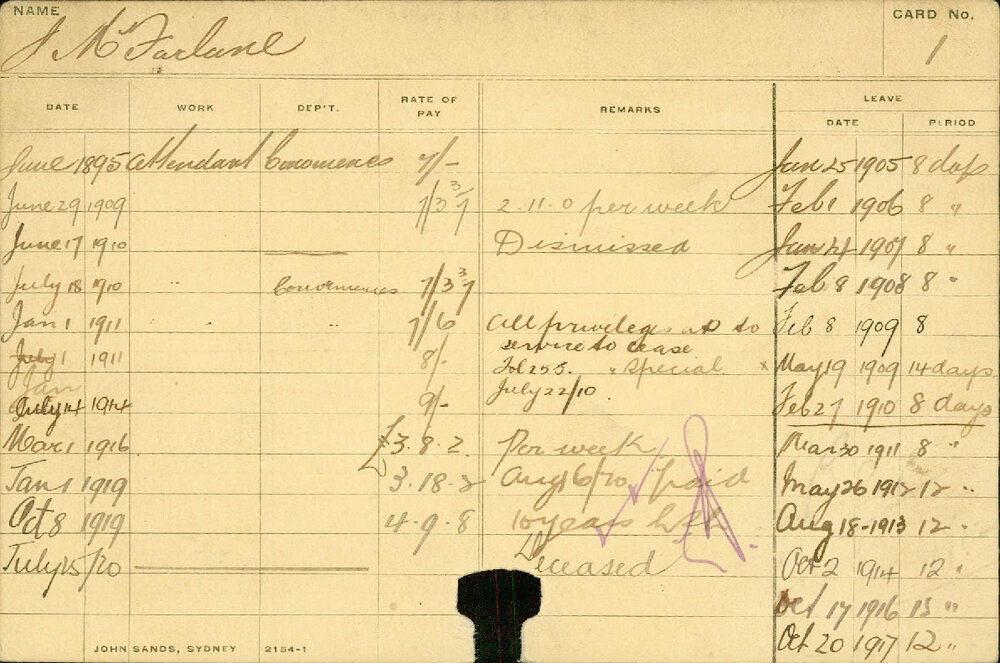 NAME
CARD No.
J McFarlane
1
DATE WORK DEP'T. RATE OF PAY REMARKS LEAVE
DATE PERIOD
June 1895 Attendant Conveniences 7/- Jan 25 1905 8 days
June 29 1909 7/3 3/7 2.11.0 per week Feb 1 1906 8 "
June 17 1910 Dismissed Jan 24 1907 8 "
July 18 1910 " Conveniences 7/3 3/7 Feb 8 1908 8 "
Jan 1 1911 " " 7/6 All privileges as to Feb 8 1909 8
service to cease
July 1 1911 8/- Fol 255. "Special x May 19 1909 14 days
Jan
July 14 1914 9/- July 22/10 Feb 27 1910 8 days
Mar 1 1916 £3.8.2 Per week Mar 30 1911 8 "
Jan 1 1919 3.18.2 Aug 16/20 paid May 26 1912 12 "
Oct 8 1919 4.9.8 10 years Aug 18-1913 12 "
July 25/20 Deceased Oct 2 1914 12 "
Oct 17 1916 13 "
Oct 20 1917 12 "
JOHN SANDS, SYDNEY 2154-1